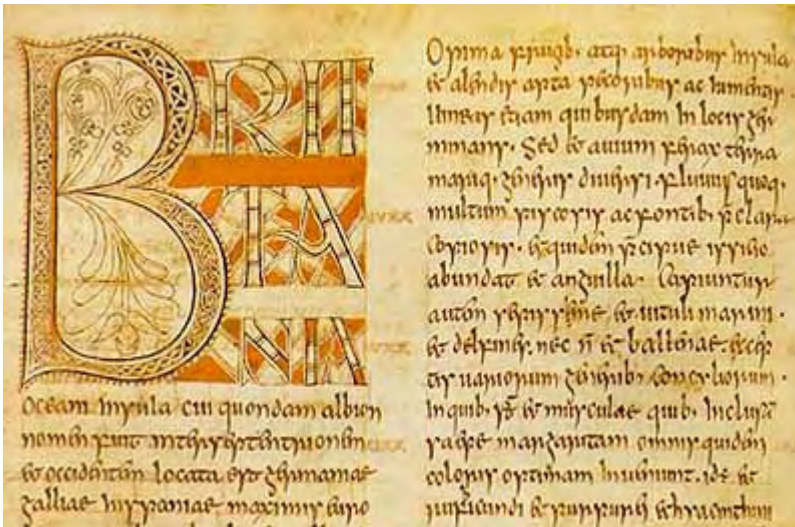 BRIT
TA
NIA
Oceani insula cui quondam albion
nomen fuit inter septentrionem
et occidentem locata est germaniae
galliae hispaniae maximis euro
Opima frugib· atq· arboribus insula
et alendis apta pecoribus ac iumentis·
uineas etiam quibusdam in locis ger
minans· Sed et auium ferax terra
mariq· generis diuersi· fluuiis quoq·
multum piscosis ac fontib· p̄claris
copiosis· et quidem p̄cipue issicio
abundat et anguilla· Capiuntur
autem saepissime et uituli marini·
et delfines nec n̄ et ballenae· excep
tis uariorum generib· concyliorum·
in quib· et musculae quib·
saepe margaritam omnis quidem
coloris optimam inueniunt· id et
rubicundi et purpurei et hyacinthini